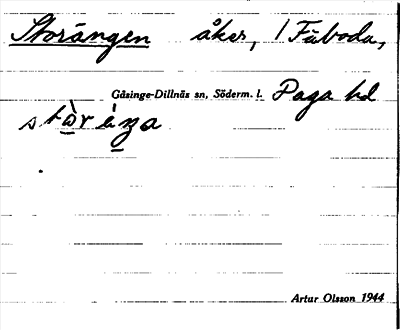 Storängen åker, 1 Fäboda,
Gåsinge-Dillnäs sn, Söderm. l. Daga hd
Artur Olsson 1944